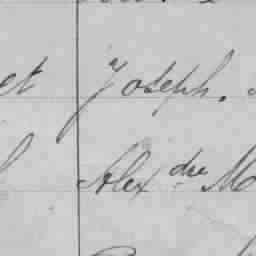 et Joseph.
Alexdre M